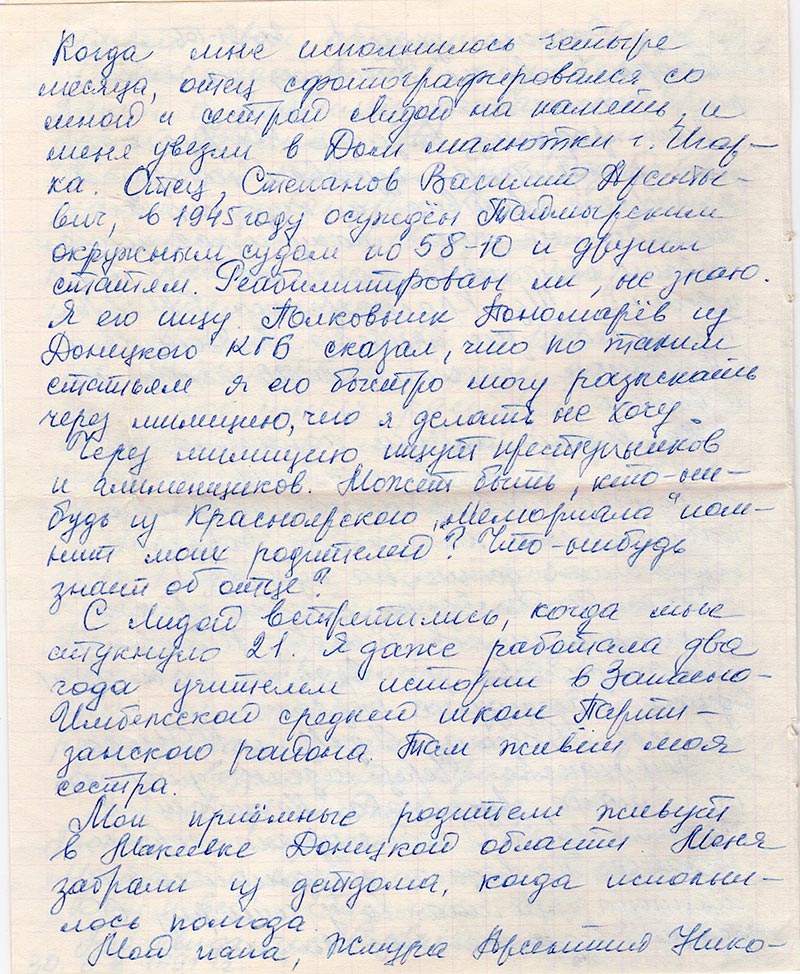 Когда мне исполнилось четыре
месяца, отец сфотографировался со
мной и сестрой Лидой на память, и
меня увезли в Дом малютки г. Игар-
ка. Отец, Степанов Василий Арсенть-
вич, в 1945 году осуждён Таймырским
окружным судом по 58-10 и другим
статям. Реабилитирован ли, не знаю.
Я его ищу. Полковник Пономарёв из
Донецкого КГБ сказал, что по таким
статьям я его быстро могу разыскать
через милицию, чего я делать не хочу.
Через милицию ищут преступников
и алиментщиков. Может быть, кто-ни-
будь из Красноярского „Мемориала“ пом-
нит моих родителей? Что-нибудь
знает об отце?
С Лидой встретились, когда мне
стукнуло 21. Я даже работала два
года учителем истории в Запасно-
Имбежской средней школе Парти-
занского района. Там живёт моя
сестра.
Мои приёмные родители живут
в Макеевке Донецкой области. Меня
забрали из детдома, когда исполни-
лось полгода.
Мой папа, Жмура Арсентий Нико-